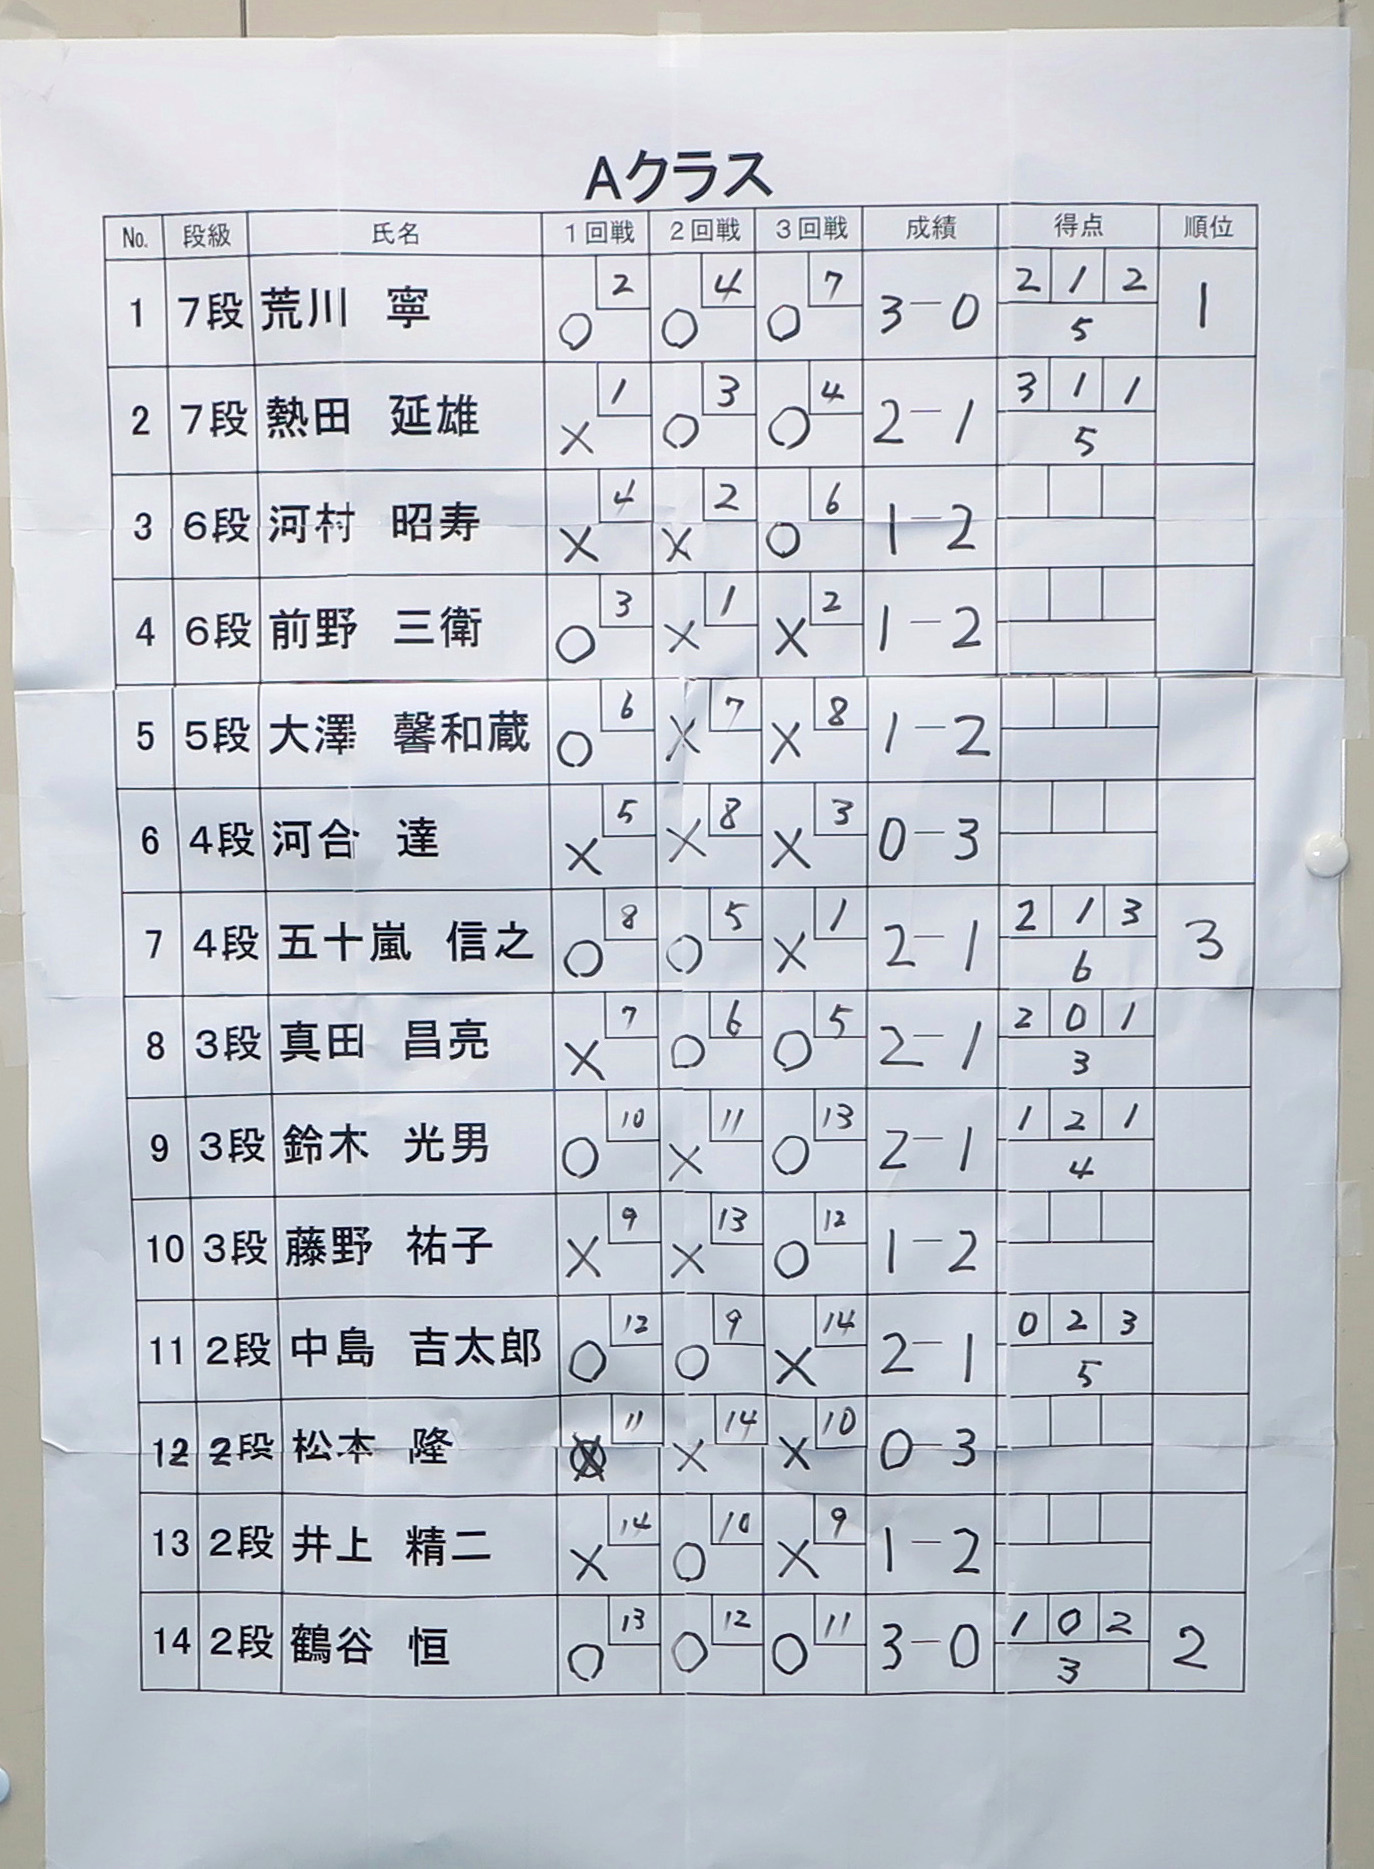 Aクラス
No. 段級 氏名 1回戦 2回戦 3回戦 成績 得点 順位
1 7段 荒川 寧 ○ 2 ○ 4 ○ 7 3-0 2 1 2 5 1
2 7段 熱田 延雄 × 1 ○ 3 ○ 4 2-1 3 1 1 5
3 6段 河村 昭寿 × 4 × 2 ○ 6 1-2
4 6段 前野 三衛 ○ 3 × 1 × 2 1-2
5 5段 大澤 馨和蔵 ○ 6 × 7 × 8 1-2
6 4段 河合 達 × 5 × 8 × 3 0-3
7 4段 五十嵐 信之 ○ 8 ○ 5 × 1 2-1 2 1 3 6 3
8 3段 真田 昌亮 × 7 ○ 6 ○ 5 2-1 2 0 1 3
9 3段 鈴木 光男 ○ 10 × 11 ○ 13 2-1 1 2 1 4
10 3段 藤野 祐子 × 9 × 13 ○ 12 1-2
11 2段 中島 吉太郎 ○ 12 ○ 9 × 14 2-1 0 2 3 5
12 2段 松本 隆 × 11 × 14 × 10 0-3
13 2段 井上 精二 × 14 ○ 10 × 9 1-2
14 2段 鶴谷 恒 ○ 13 ○ 12 ○ 11 3-0 1 0 2 3 2